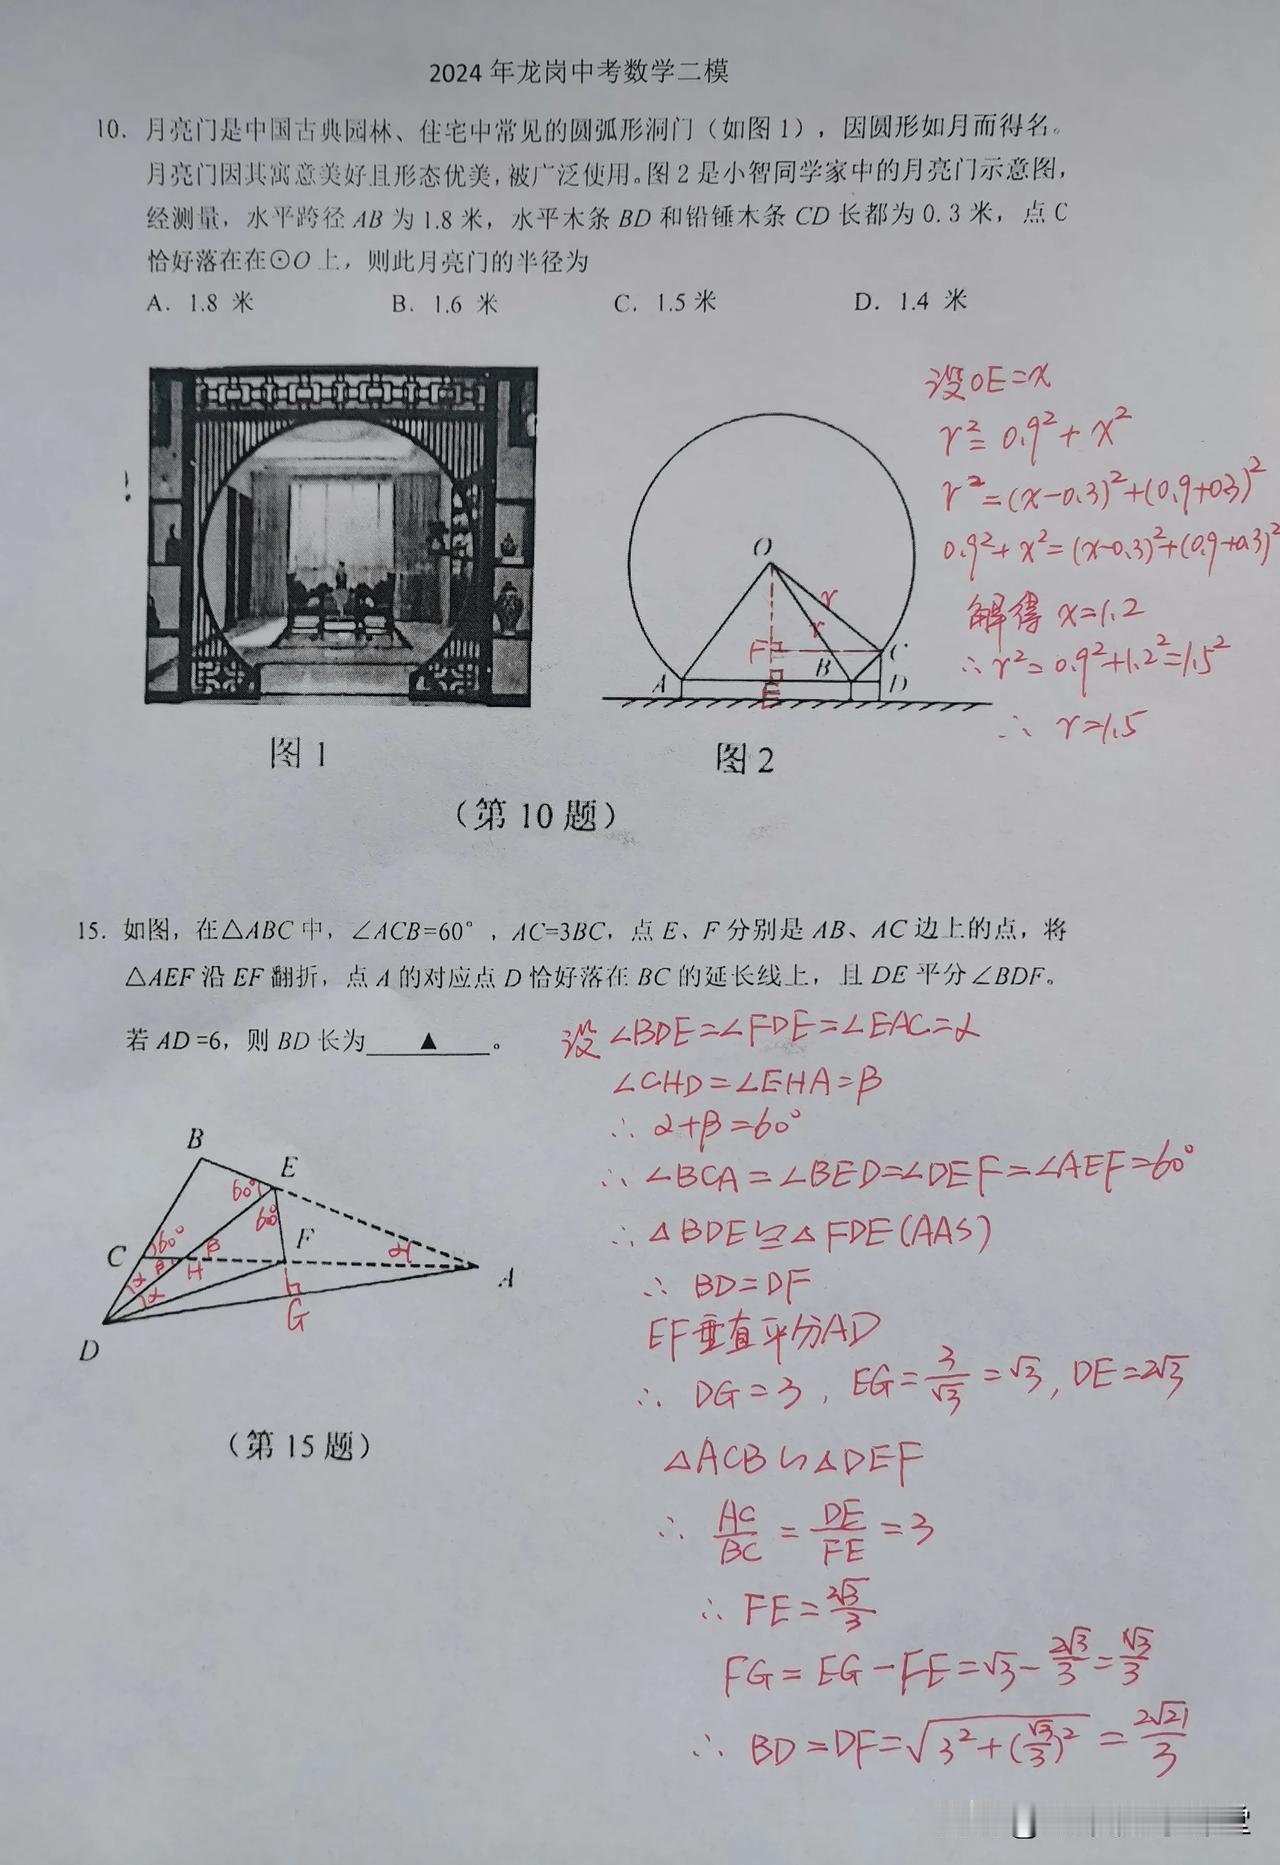 2024年龙岗中考数学二模
10. 月亮门是中国古典园林、住宅中常见的圆弧形洞门（如图1），因圆形如月而得名。
月亮门因其寓意美好且形态优美,被广泛使用。图2是小智同学家中的月亮门示意图，
经测量，水平跨径AB为1.8米，水平木条BD和铅锤木条CD长都为0.3米，点C
恰好落在在⊙O上，则此月亮门的半径为
A. 1.8 米 B. 1.6 米 C. 1.5米 D. 1.4 米
设OE=x
r²=0.9²+x²
r²=(x-0.3)²+(0.9+0.3)²
0.9²+x²=(x-0.3)²+(0.9+0.3)²
解得 x=1.2
∴r²=0.9²+1.2²=1.5²
∴ r=1.5
O
r
r
F
C
B
A
E
D
图1
图2
（第10题）
15. 如图，在△ABC中，∠ACB=60°，AC=3BC，点E、F分别是AB、AC边上的点，将
△AEF沿EF翻折，点A的对应点D恰好落在BC的延长线上，且DE平分∠BDF。
若AD=6，则BD长为____▲____。
设∠BDE=∠FDE=∠EAC=α
∠CHD=∠EHA=β
∴ α+β=60°
∴ ∠BCA=∠BED=∠DEF=∠AEF=60°
∴ △BDE≌△FDE(AAS)
∴ BD=DF
EF垂直平分AD
∴ DG=3, EG=3/√3=√3, DE=2√3
△ACB∽△DEF
∴ AC/BC=DE/FE=3
∴ FE=2√3/3
FG=EG-FE=√3-2√3/3=√3/3
∴ BD=DF=√(3²+(√3/3)²)=2√21/3
B
E
60°
60°
F
C
60°
β
α
β
H
A
α
α
G
D
（第15题）